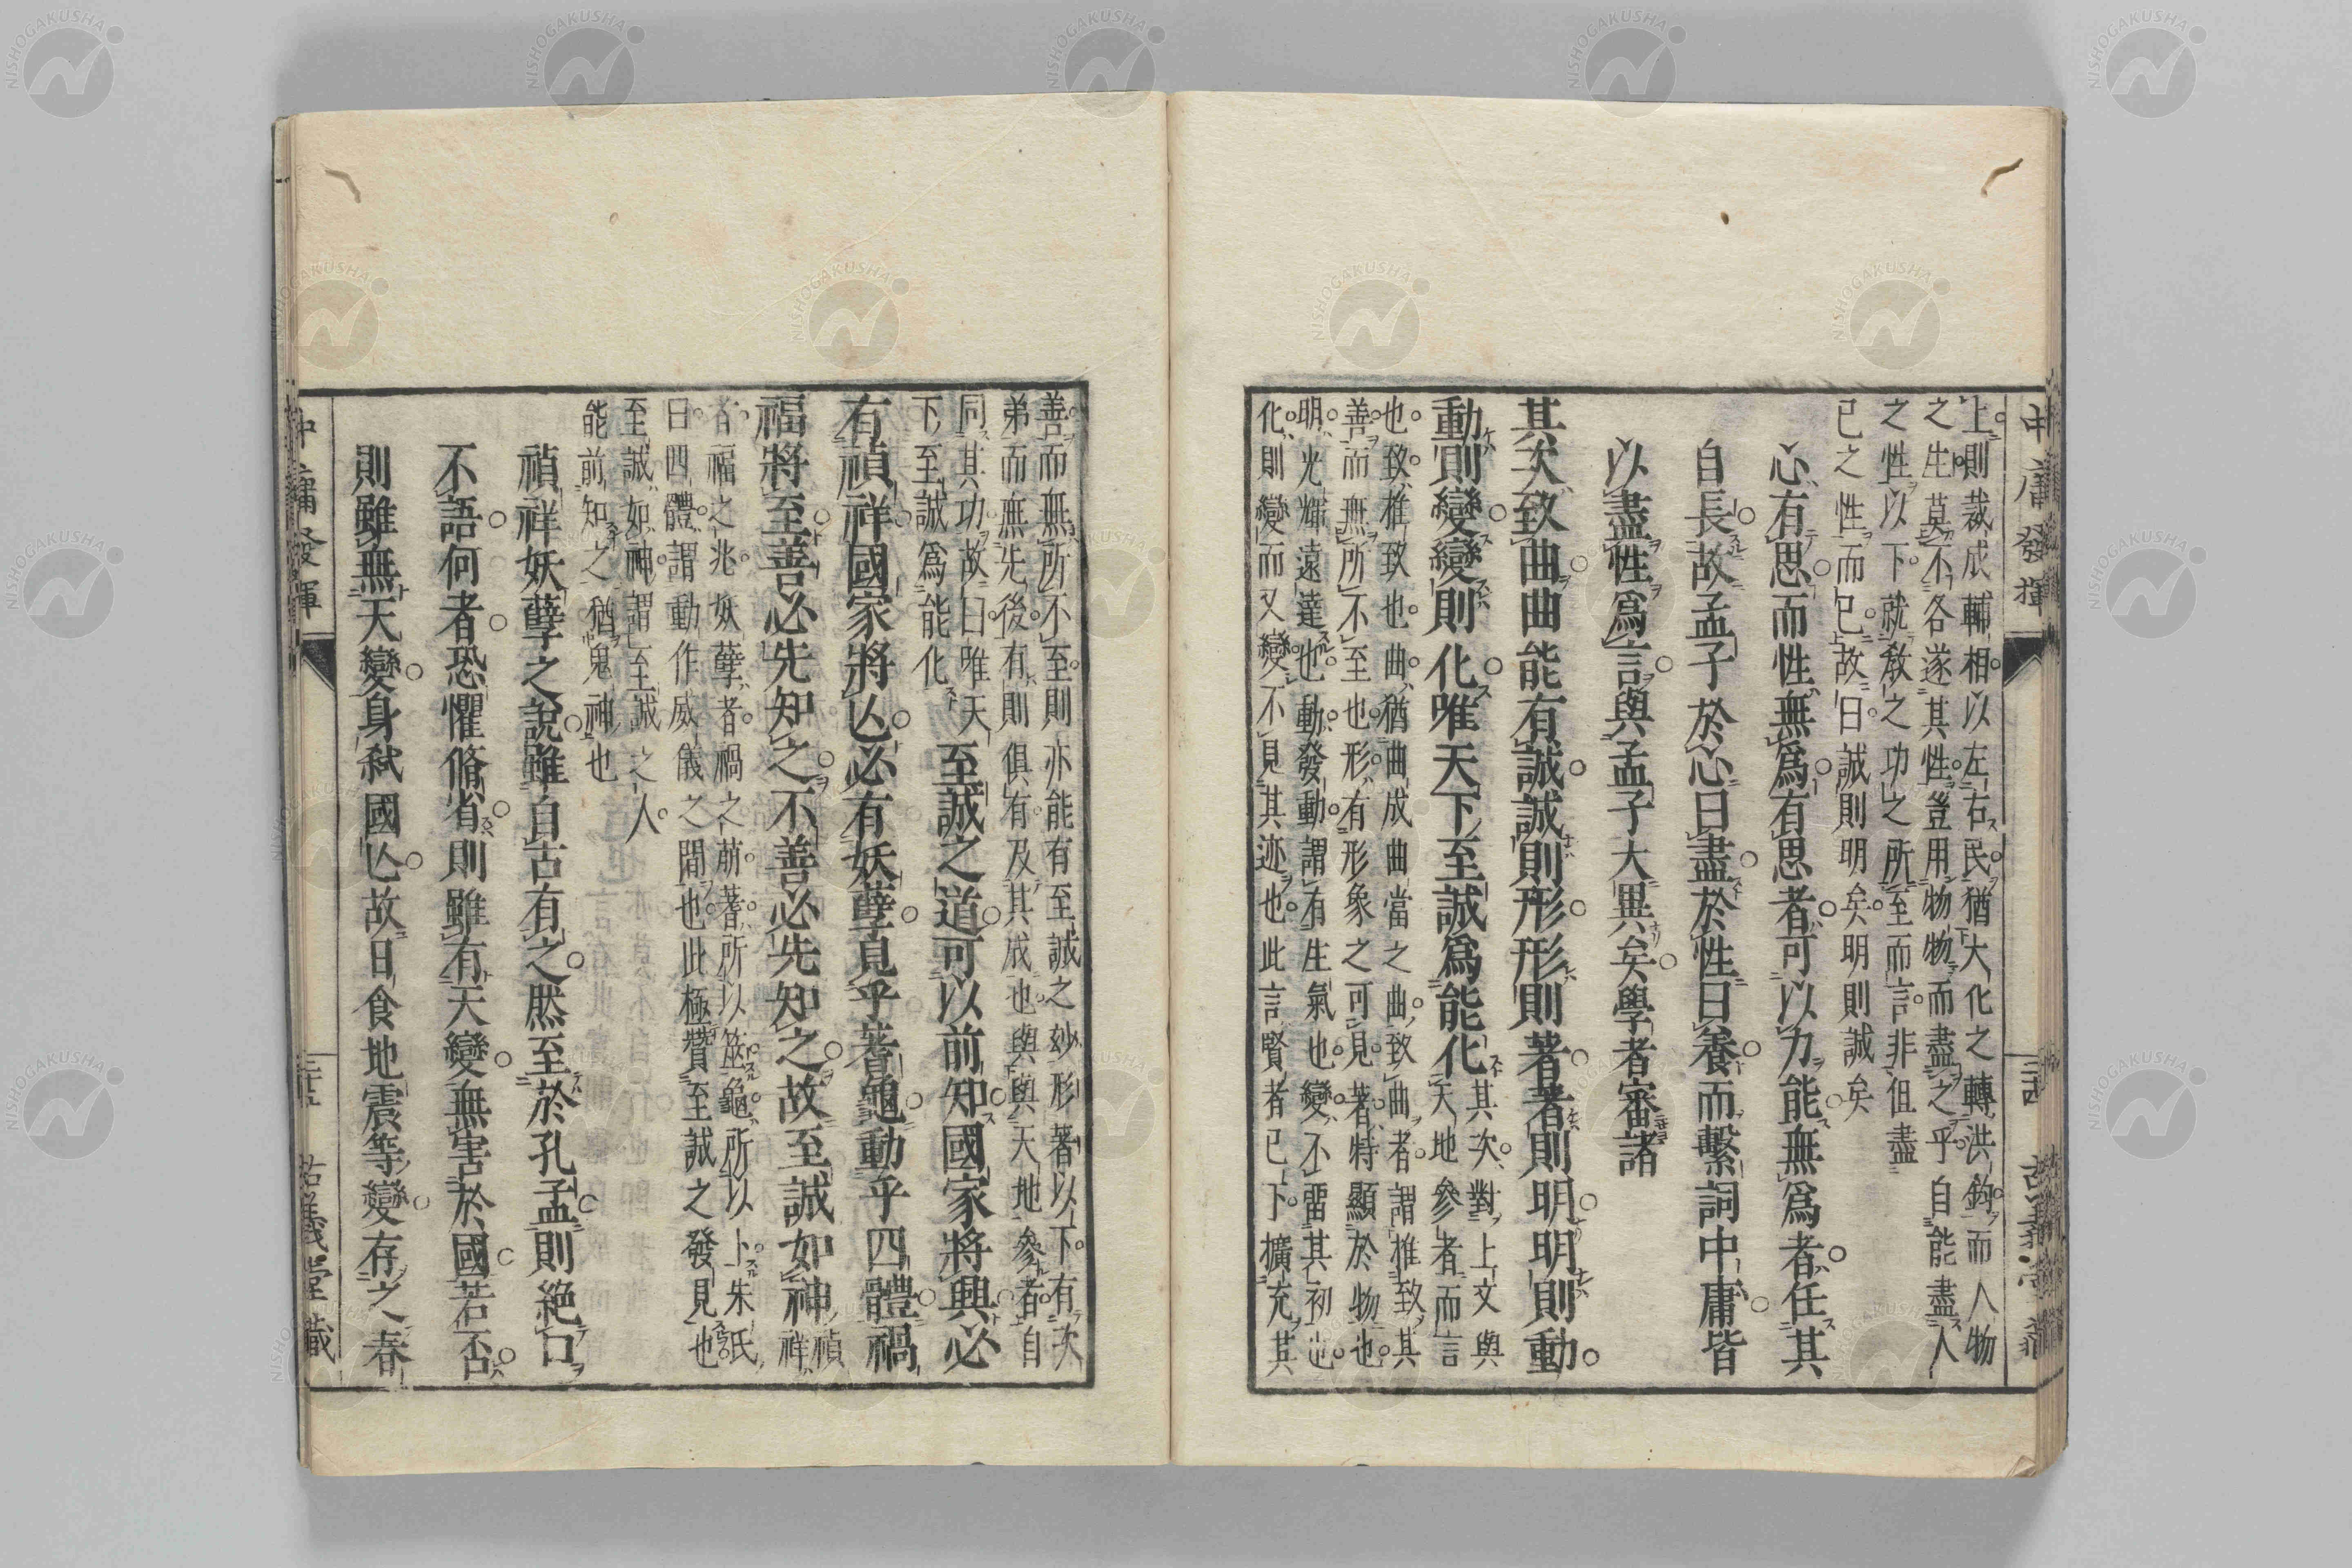 中庸發揮
上則裁成輔相以左右民猶大化之轉洪鈞而人物
之生莫不各遂其性登用物物而盡之乎自能盡人
之性以下就教之功之所至而言非但盡
己之性而已故曰誠則明矣明則誠矣
心有思而性無爲有思者可以力能無爲者任其
自長故孟子於心曰盡於性曰養而繫詞中庸皆
以盡性爲言與孟子大異矣學者審諸
其次致曲曲能有誠誠則形形則著著則明明則動
動則變變則化唯天下至誠爲能化其次對上文與天地參者而言
也致推致也曲猶曲成曲當之曲致曲者謂推致其
善而無所不至也形有形象之可見著特顯於物也
明光輝遠達也動發動謂有生氣也變不留其初也
化則變而又變不見其迹也此言賢者已下擴充其
善而無所不至則亦能有至誠之妙形著以下有次
弟而無先後有則俱有及其成也與與天地參者自
同其功故曰唯天
下至誠爲能化
至誠之道可以前知國家將興必
有禎祥國家將亾必有妖孽見乎蓍龜動乎四體禍
福將至善必先知之不善必先知之故至誠如神禎祥
者福之兆妖孽者禍之萠蓍所以筮龜所以卜朱氏
曰四體謂動作威儀之間也此極贊至誠之發見也
至誠如神謂至誠之人
能前知之猶鬼神也
禎祥妖孽之說雖自古有之然至於孔孟則絶口
不語何者恐懼脩省則雖有天變無害於國若否
則雖無天變身弑國亾故日食地震等變存之春
中庸發揮
古義堂藏